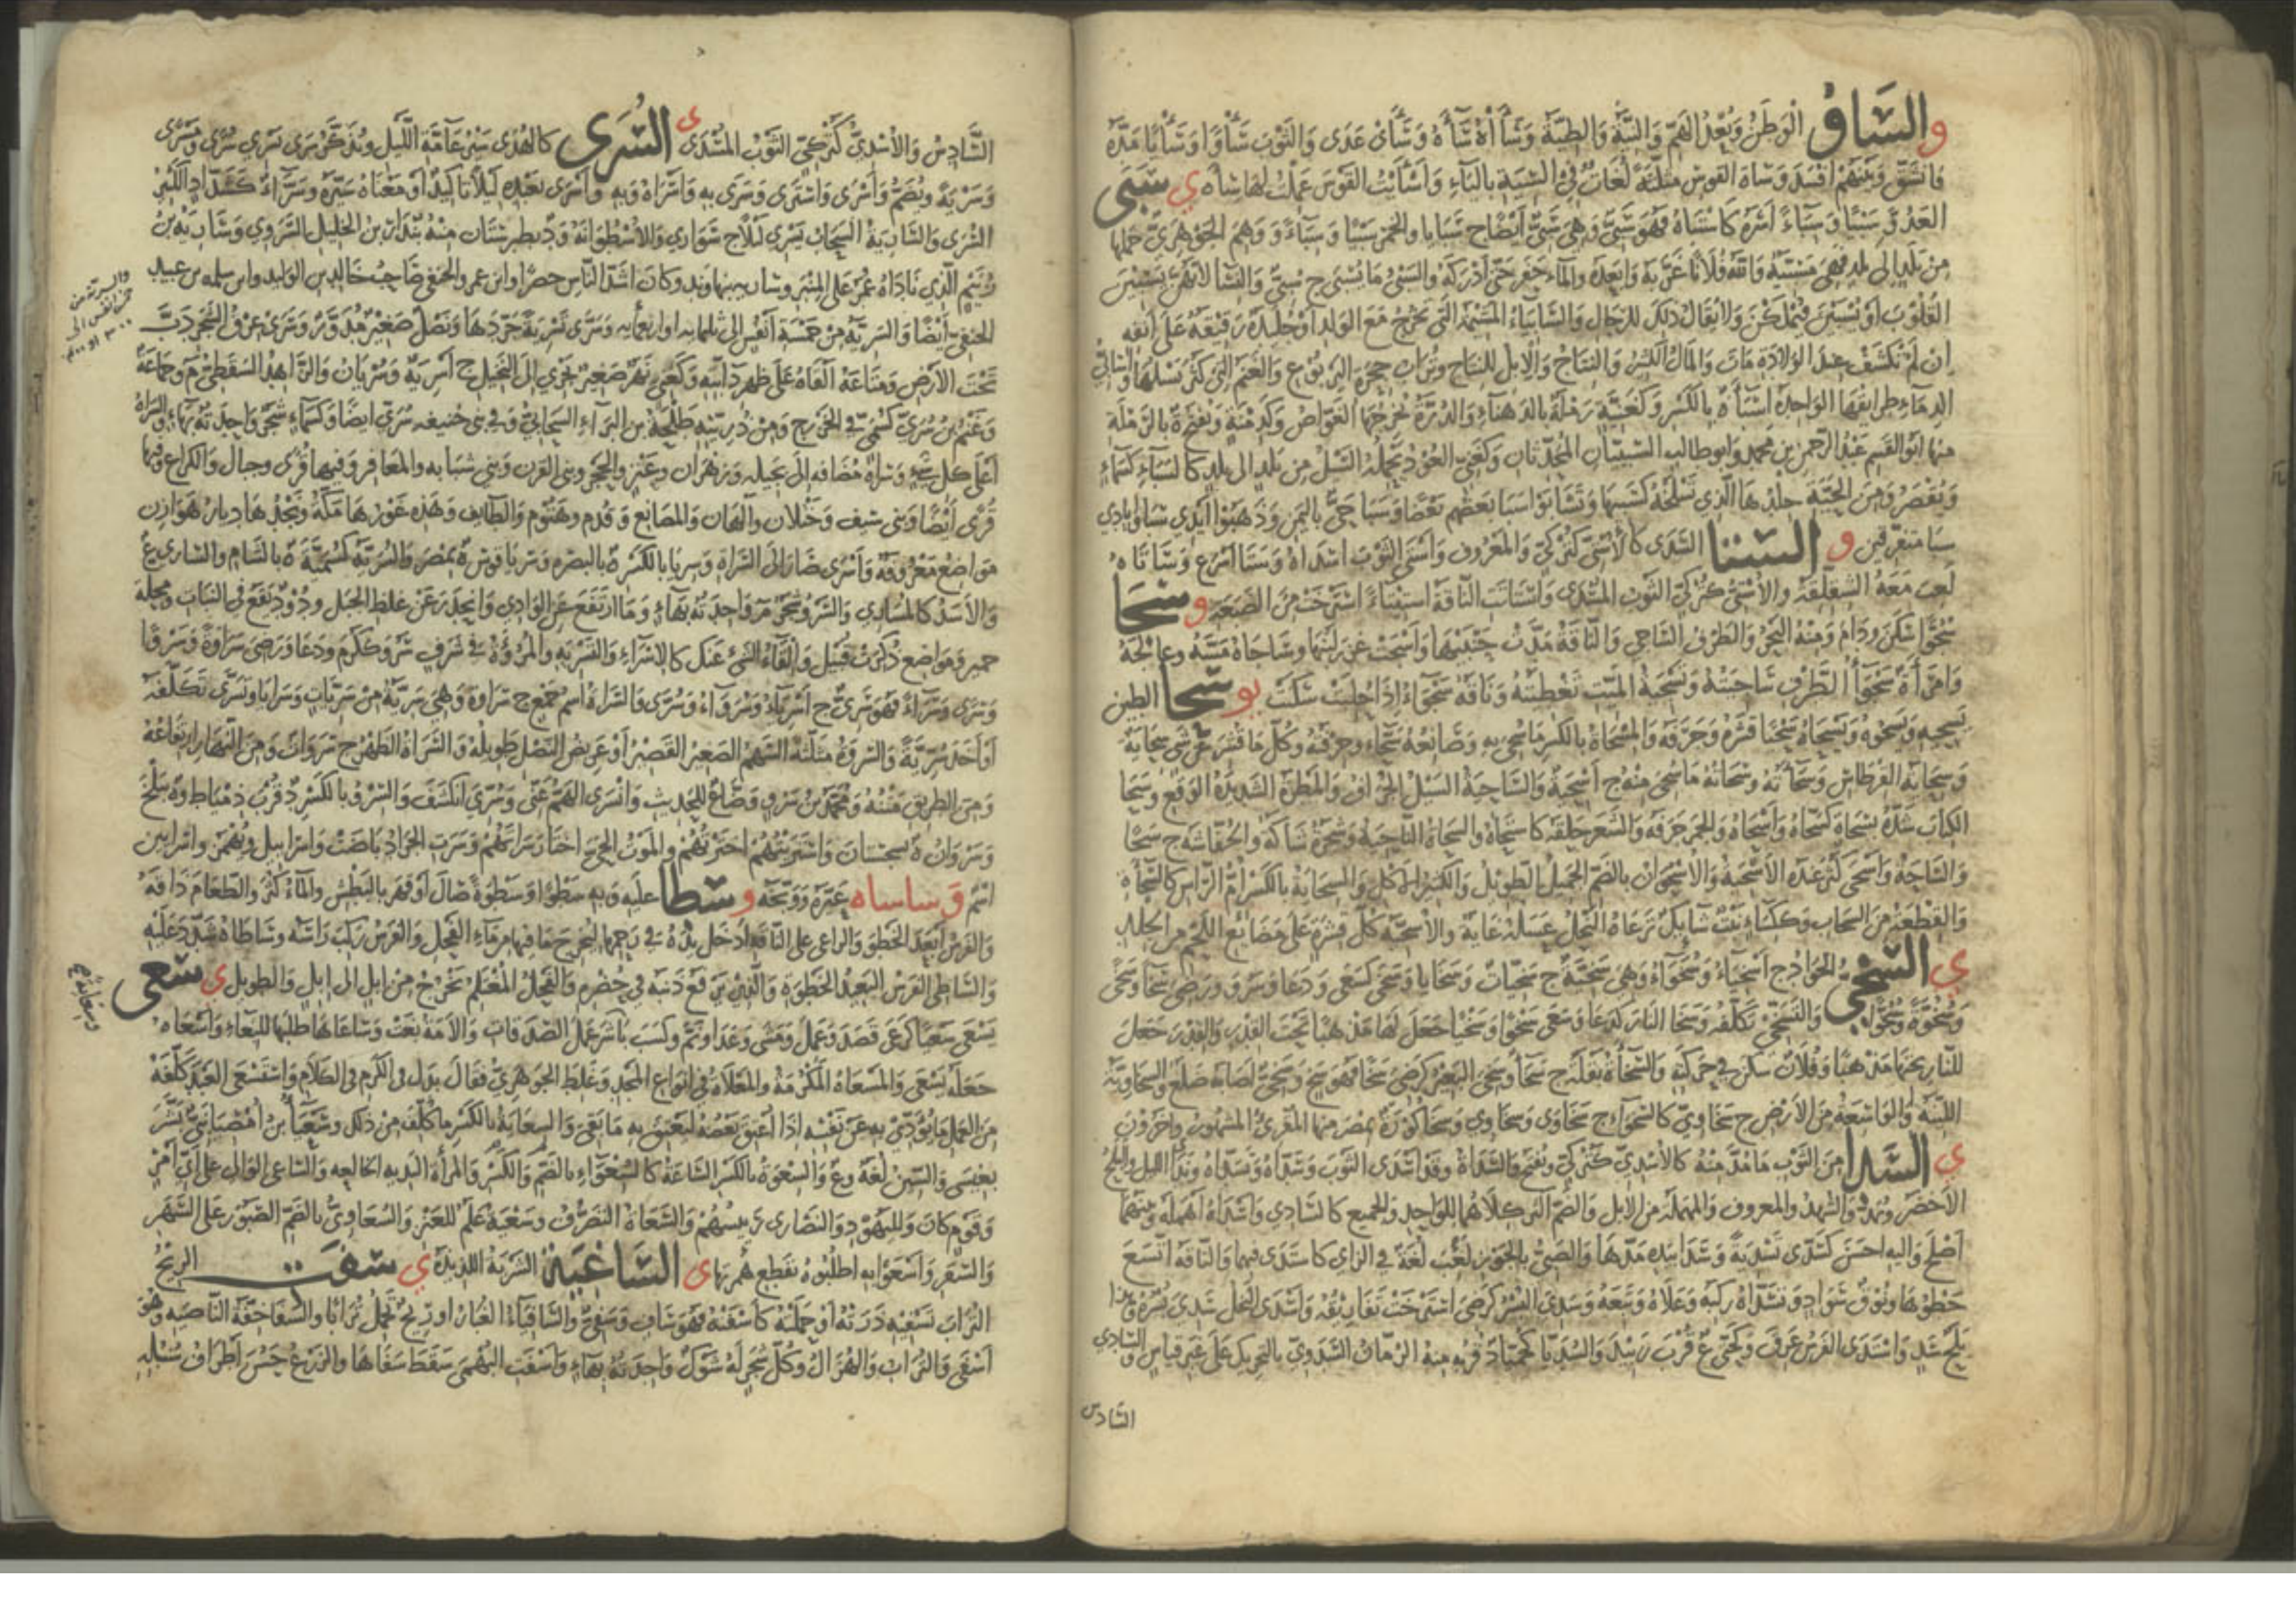 و السأو الوطن وبعد الهم والنية والطية وسأاه ساءه وسأى عدى والثوب سأوا وسأيا مده
فانشق وبينهم افسد وسأة القوس مثلثة لغات في السية بالياء واسأيت القوس عملت لها سأة ي سبى
العدو سبيا وسباء اسره كاستباه فهو سبي وهي سبي ايضا ج سبايا والخمر سبيا وسباء ووهم الجوهري حملها
من بلد الى بلد فهي سبية والله فلانا غربه وابعده والماء حفر حتى ادركه والسبي ما يسبى ج سبي والنسا لانهن يسبين
القلوب او يسبين فيملكن ولا يقال ذلك للرجال والسابياء المشيمة التي تخرج مع الولد او جليدة رقيقة على انفه
ان لم تكشف عند الولادة مات والمال الكثير والنتاج والابل للنتاج وتراب جحرة اليربوع والغنم التي كثر نسلها
الدماء طرايقها الواحدة اسباءة بالكسر وكغنية رملة بالدهناء والدرة يخرجها الغواص
منها ابو القسم عبد الرحمن بن محمد وابو طالب السبيان المحدثان وكغني العود يحمله السيل من بلد الى بلد كالسباء كسماء
ويقصر ومن الحية جلدها الذي تسلخه كسبيها وتسابوا سبا بعضهم بعضا وسبا حي باليمن وذهبوا ايدي سبا وايادي
سبا متفرقين و الستا السدى كالاستي كتركي والمعروف واستى الثوب اسداه وستا اسرع وساتاه
لعب معه الشفلقة والاستي كتركي الثوب المسدى واستاتت الناقة استيتاء استرخت من الضبعة و سجا
سجوا سكن ودام ومنه البحر والطرف الساجي والناقة مدت حنينها واسجت غزر لبنها وساجاه مسه وعالجه
وامرأة سجواء الطرف ساجيته وتسجية الميت تغطيته وناقة سجواء اذا حلبت سكنت يو سحا الطين
يسحيه ويسحوه ويسحاه سحيا قشره وجرفه والمسحاة بالكسر ما سحي به وصانعه سحاء وحرفته وكل ما قشر عن شي سحاية
وسحاية القرطاس وسحاءته وسحاته ما سحي منه ج اسحية والساحية السيل الجراف والمطرة الشديدة الوقع وسحا
الكتاب شده بسحاة كسحاه واسحاه والجمر جرفه والشعر حلقه كاستحاه والسحاة الناحية وشجرة شاكة والخفاشة ج سحا
والساحة واسحى كثر عنده الاسحية والاسحوان بالضم الجميل الطويل والكثير الاكل والسحاية بالكسر ام الراس كالسحاة
والقطعة من السحاب وككساء نبت شايك ترعاه النحل عسله غاية والاسحية كل قشرة على مضايغ اللحم من الجلد
ي السخي الجواد ج اسخياء وسخواء وهي سخية ج سخيات وسخايا وسخى كسعى ودعا وسرو ورضي سخا وسخى
وسخوة وسخوا والتسخي تكلفه وسخا النار كدعا وسعى سخوا وسخيا جعل لها مذهبا تحت القدر والقدر جعل
للنار تحتها مذهبا وفلان سكن في حركته والسخاءة بقلة ج سخاء وسخي البعير كرضي سخا فهو سخ وسخي اصابه ضلع والسخاوية
اللينة والواسعة من الارض ج سخاوي كالسخواء ج سخاوى وسخاوي وسخا كورة بمصر منها المقرئ المشهور واخرون
ي السدا من الثوب ما مد منه كالاسدي كتركي ويفتح والسداة وقد اسدى الثوب وسداه وتسداه وندا الليل والبلح
الاخضر ويمد والشهد والمعروف والمهملة من الابل والضم اكثر كلاهما للواحد والجميع كالسادي واسداه اهمله وبينهما
اصلح واليه احسن كسدى تسدية وسدا بيده مدها والصبي بالجوز لعب لغة في الزاي كاستدى فيهما والناقة اتسع
خطوها ونوق سواد وتسداه ركبه وعلاه وتبعه وسدي البسر كرضي استرخت تفاريقه واسدى النخل سدي بسره وهذا
بلح سد واستدى الفرس عرق وكحتى ع قرب زبيد والسديا كحميا د قربه منه الرمان السدوي بالتحريك على غير قياس والسادي
السادس
السادس والاسدي كتركي الثوب المسدى ي السرى كالهدى سير عامة الليل ويذكر سرى يسري سرى ومسرى
وسرية ويضم واسرى واسترى وسرى به واسراه وبه واسرى بعبده ليلا تاكيد او معناه سيره وسراء ككتاد الكثير
السرى والسارية السحاب يسري ليلا ج سواري والاسطوانة ود بطبرستان منه بندار بن الخليل السروي وسارية بن
زنيم الذي ناداه عمر على المنبر وسارية بنهاوند وكان اشد الناس حضرا وابن عمرو الحنفي صاحب خالد بن الوليد وابن سلمة بن عبيد
الحنفي ايضا والسرية من خمسة انفس الى ثلمائة او اربعمائة وسرى تسرية جردها ونصل صغير مدور وسرى عرق الشجر دب
تحت الارض ومتاعه القاه على ظهر دابته وكغني نهر صغير يجري الى النخيل ج اسرية وسريان والزاهد السقطي م وجماعة
وغنم بن سري كسمي في الخزرج ومن ذريته طلحة بن البراء السحابي وفي بني حنيفة سري ايضا وكسماء شجر واحدته بهاء والسراة
اعلى كل شيء وسراة مضافة الى بجيلة وزهران وعنز والحجر وبني القرن وبني شبابة والمعافر وفيها قرى وجبال والكراع وفيها
قرى ايضا وبني سيف وختلان والهان والمصانع وقدم وهتوم والطايف وهذه غورها مكة ونجدها ديار هوازن
مواضع معروفة واسرى صار الى السراة وسريا بالكسرة بالبصرة وسرياقوس ة بمصر والسرية كسمية ة بالشام والساري ع
والاسد كالمساري والسرو شجر م واحدته بهاء وما ارتفع عن الوادي وانحدر عن غلظ الجبل ودود يقع في النبات ومحلة
حمير ومواضع ذكرت قبيل والقاء الشيء عنك كالاسراء والتسرية والمروءة في شرف سرو ككرم ودعا ورضي سراوة وسروا
وسرى وسراء فهو سري ج اسرياء وسرواء وسرى والسراة اسم جمع ج سراوة وهي سرية من سريات وسرايا وتسرى تكلفه
او اخذ سرية والسروة مثلثة السهم الصغير القصير او عريض النصل طويله والسراة الظهر ج سروات ومن النهار ارتفاعه
ومن الطريق متنه ومحمد بن سرو وضاع للحديث وانسرى الهم عني وسري انكشف والسرو بالكسر د قرب دمياط وة ببلخ
وسروان ة بسجستان واستريتهم اخترتهم والموت الحي اختار سراتهم وسرت الجراد باضت واسراييل ويهمز واسرايين
اسم و ساساه عيره ووبخه و سطا عليه وبه سطوا وسطوة صال او قهر بالبطش والماء كثر والطعام ذاقه
والفرس ابعد الخطو والراعي على الناقة ادخل يده في رحمها ليخرج ما فيها من ماء الفحل والفرس ركب راسه وساطاه شدد عليه
والساطي الفرس البعيد الخطوة والذي يرفع ذنبه في حضره والفحل المغتلم يخرج من ابل الى ابل والطويل ي سعى
يسعى سعيا كرعى قصد وعمل ومشى وعدا ونم وكسب باشر عمل الصدقات والامة بغت وساعاها طلبها للبغاء واسعاه
جعله يسعى والمسعاة المكرمة والمعلاة في انواع المجد وغلط الجوهري فقال بدل في الكرم في الكلام واستسعى العبد كلفه
من العمل ما يؤدي به عن نفسه اذا اعتق بعضه ليعتق به ما بقي والسعاية بالكسر ما كلف من ذلك وسعيا بن امصيا نبي بشر
بعيسى والشين لغة وع والسعوة بالكسر الساعة كالسعواء بالضم والكسر والمرأة البذية الخالعة والساعي الوالي على اي امر
وقوم كان ولليهود والنصارى رئيسهم والسعاة التصرف وسعية علم للعنز والسعاوي بالضم الصبور على السهر
والسفر واسعوا به اطلبوه بقطع همزها ي الساغية الشربة اللذيذة ي سفت الريح
التراب تسفيه ذرته او حملته كاسفته فهو ساف وسفي والسافياء الغبار او ريح تحمل ترابا والسفا خفة الناصية وهو
اسفى والتراب والهزال وكل شجر له شوك واحدته بهاء واسفت البهمى سقط سفاها والزرع خشن اطراف سنبله
والسرية من
خمس انفس الى
٣٠٠ او ٤٠٠
وسعاية